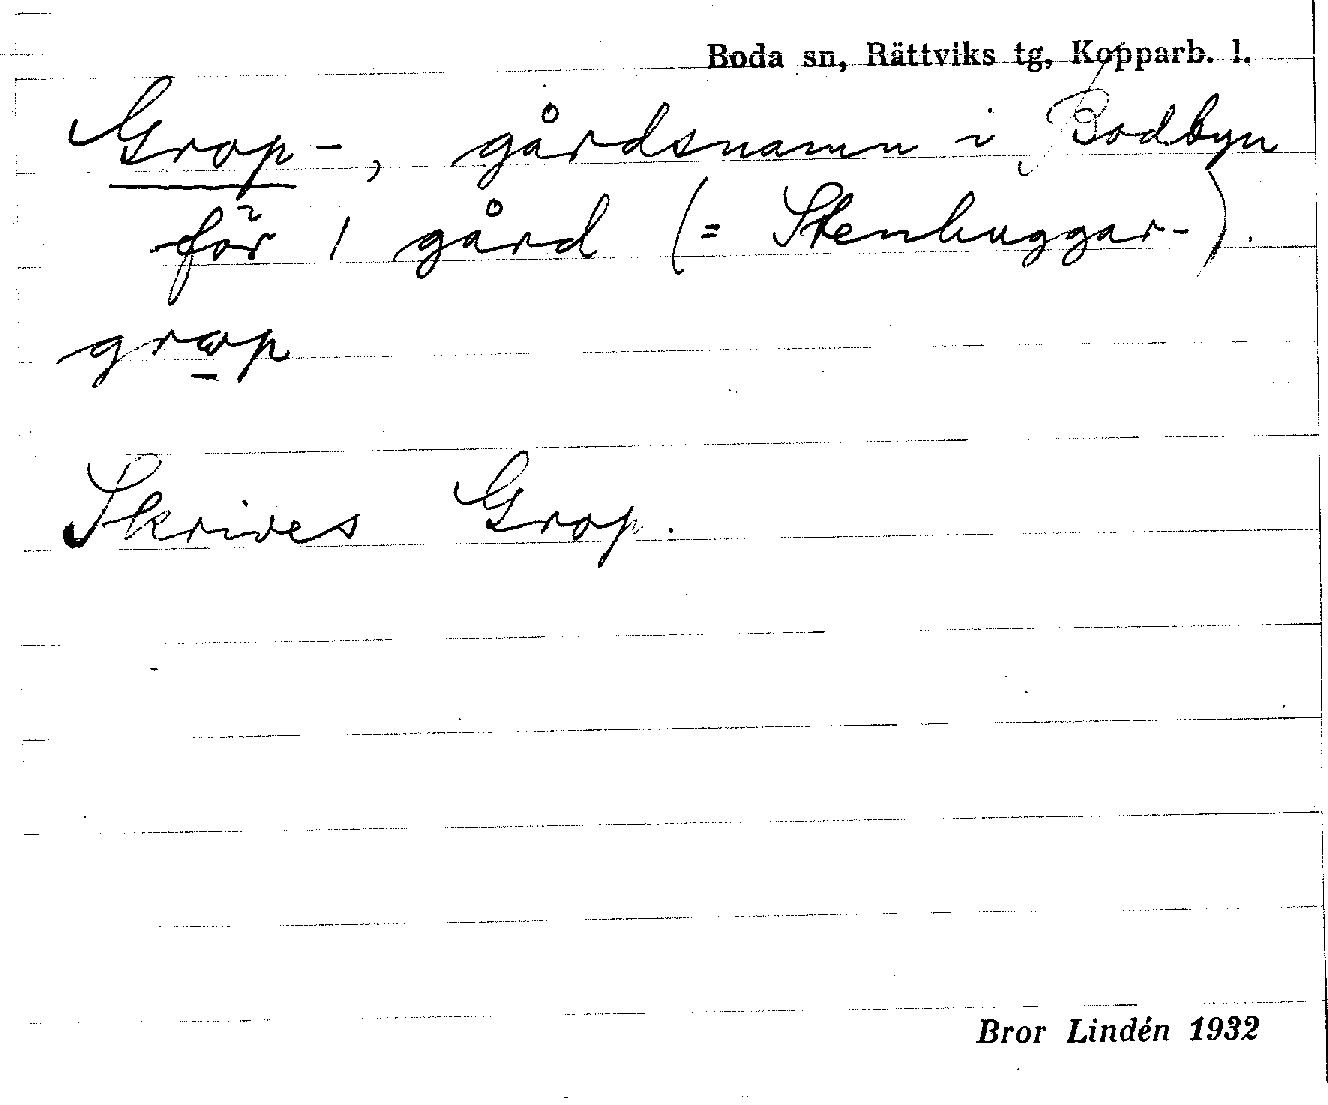 Boda sn, Rättviks tg, Kopparb. l.
Grop-, gårdsnamn i Bodbyn
för 1 gård (= Stenhuggar-).
grop
Skrives Grop.
Bror Lindén 1932